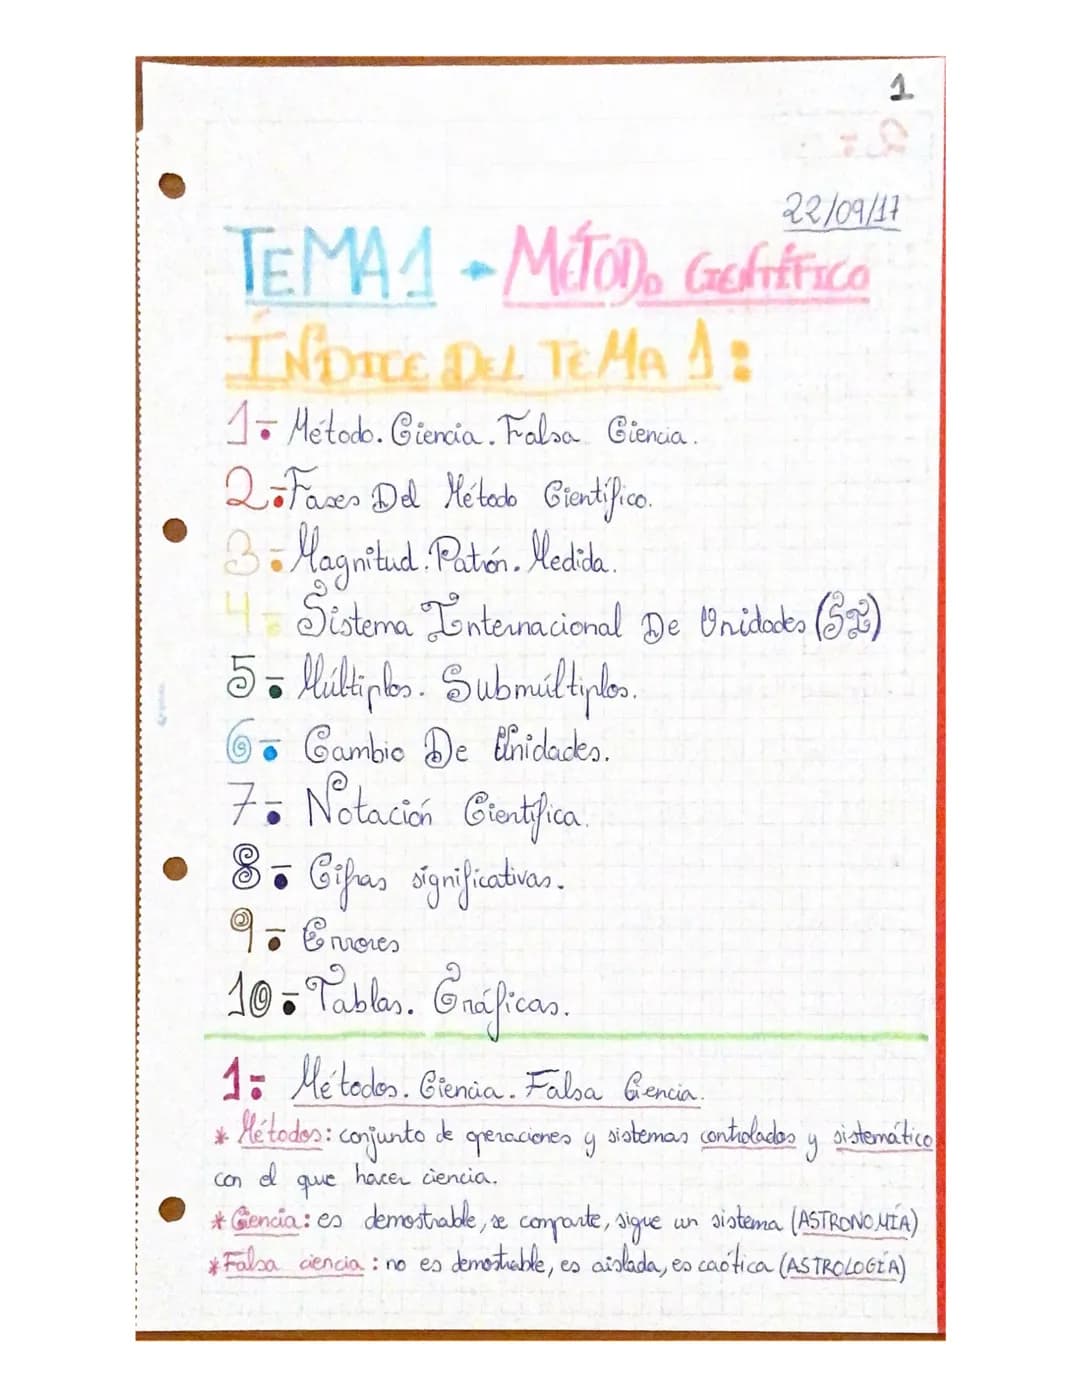 1
22/09/17
TEMA 1 - MÉTODO CIENTÍFICO
ÍNDICE DEL TEMA 1:
1- Método. Ciencia. Falsa Ciencia.
2- Fases Del Método Científico.
3- Magnitud. Patrón. Medida.
4- Sistema Internacional De Unidades (SI)
5- Múltiplos. Submúltiplos.
6- Cambio De Unidades.
7- Notación Científica.
8- Cifras significativas.
9- Errores
10- Tablas. Gráficas.
1- Métodos. Ciencia. Falsa Ciencia.
* Métodos: conjunto de operaciones y sistemas controlados y sistemático
con el que hacer ciencia.
* Ciencia: es demostrable, se comparte, sigue un sistema (ASTRONOMÍA)
* Falsa ciencia: no es demostrable, es aislada, es caótica (ASTROLOGÍA)